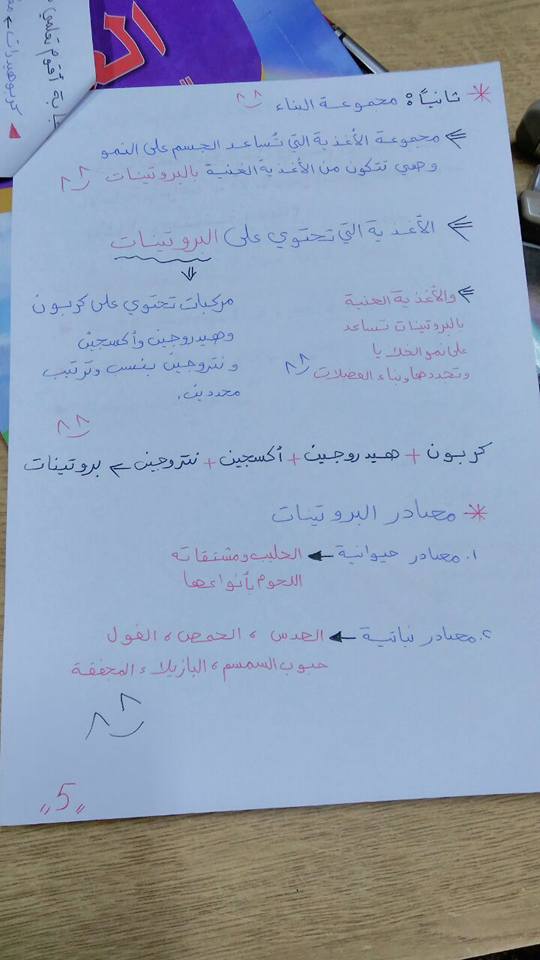 * ثانياً: مجموعة البناء
مجموعة الأغذية التي تُساعد الجسم على النمو
وهي تتكون من الأغذية الغنية بالبروتينات
الأغذية التي تحتوي على البروتينات
والأغذية الغنية
بالبروتينات تساعد
على نمو الخلايا
وتجددها وبناء العضلات
مركبات تحتوي على كربون
وهيدروجين وأكسجين
ونتروجين بنسب وترتيب
محددين.
كربون + هيدروجين + أكسجين + نتروجين ← بروتينات
* مصادر البروتينات
١. مصادر حيوانية ← الحليب ومشتقاته
اللحوم بأنواعها
٢. مصادر نباتية ← العدس، الحمص، الفول
حبوب السمسم، البازيلاء المجففة
"5"
كربوهيدرات ←
أقوم تعلمي